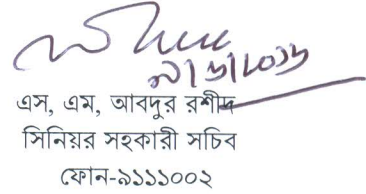 এস, এম, আবদুর রশীদ
সিনিয়র সহকারী সচিব
ফোন-৯১১১০০২